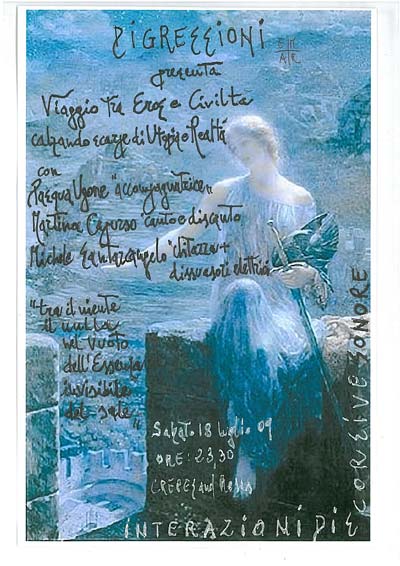 DIGRESSIONI
presenta
Viaggio tra Eros e Civiltà
calzando scarpe di Utopia e Realtà
con
Pasqua Ugone "accompagnatrice"
Martina Caputo "canto e discanto
Michele Santarcangelo "chitarra +
dissuasori elettrici
"tra il niente
il nulla
nel vuoto
dell'Essenza
invisibile
del sole"
Sabato 18 luglio 09
ORE: 23,30
CREPES and
INTERAZIONI DI E
CORSIVE SONORE